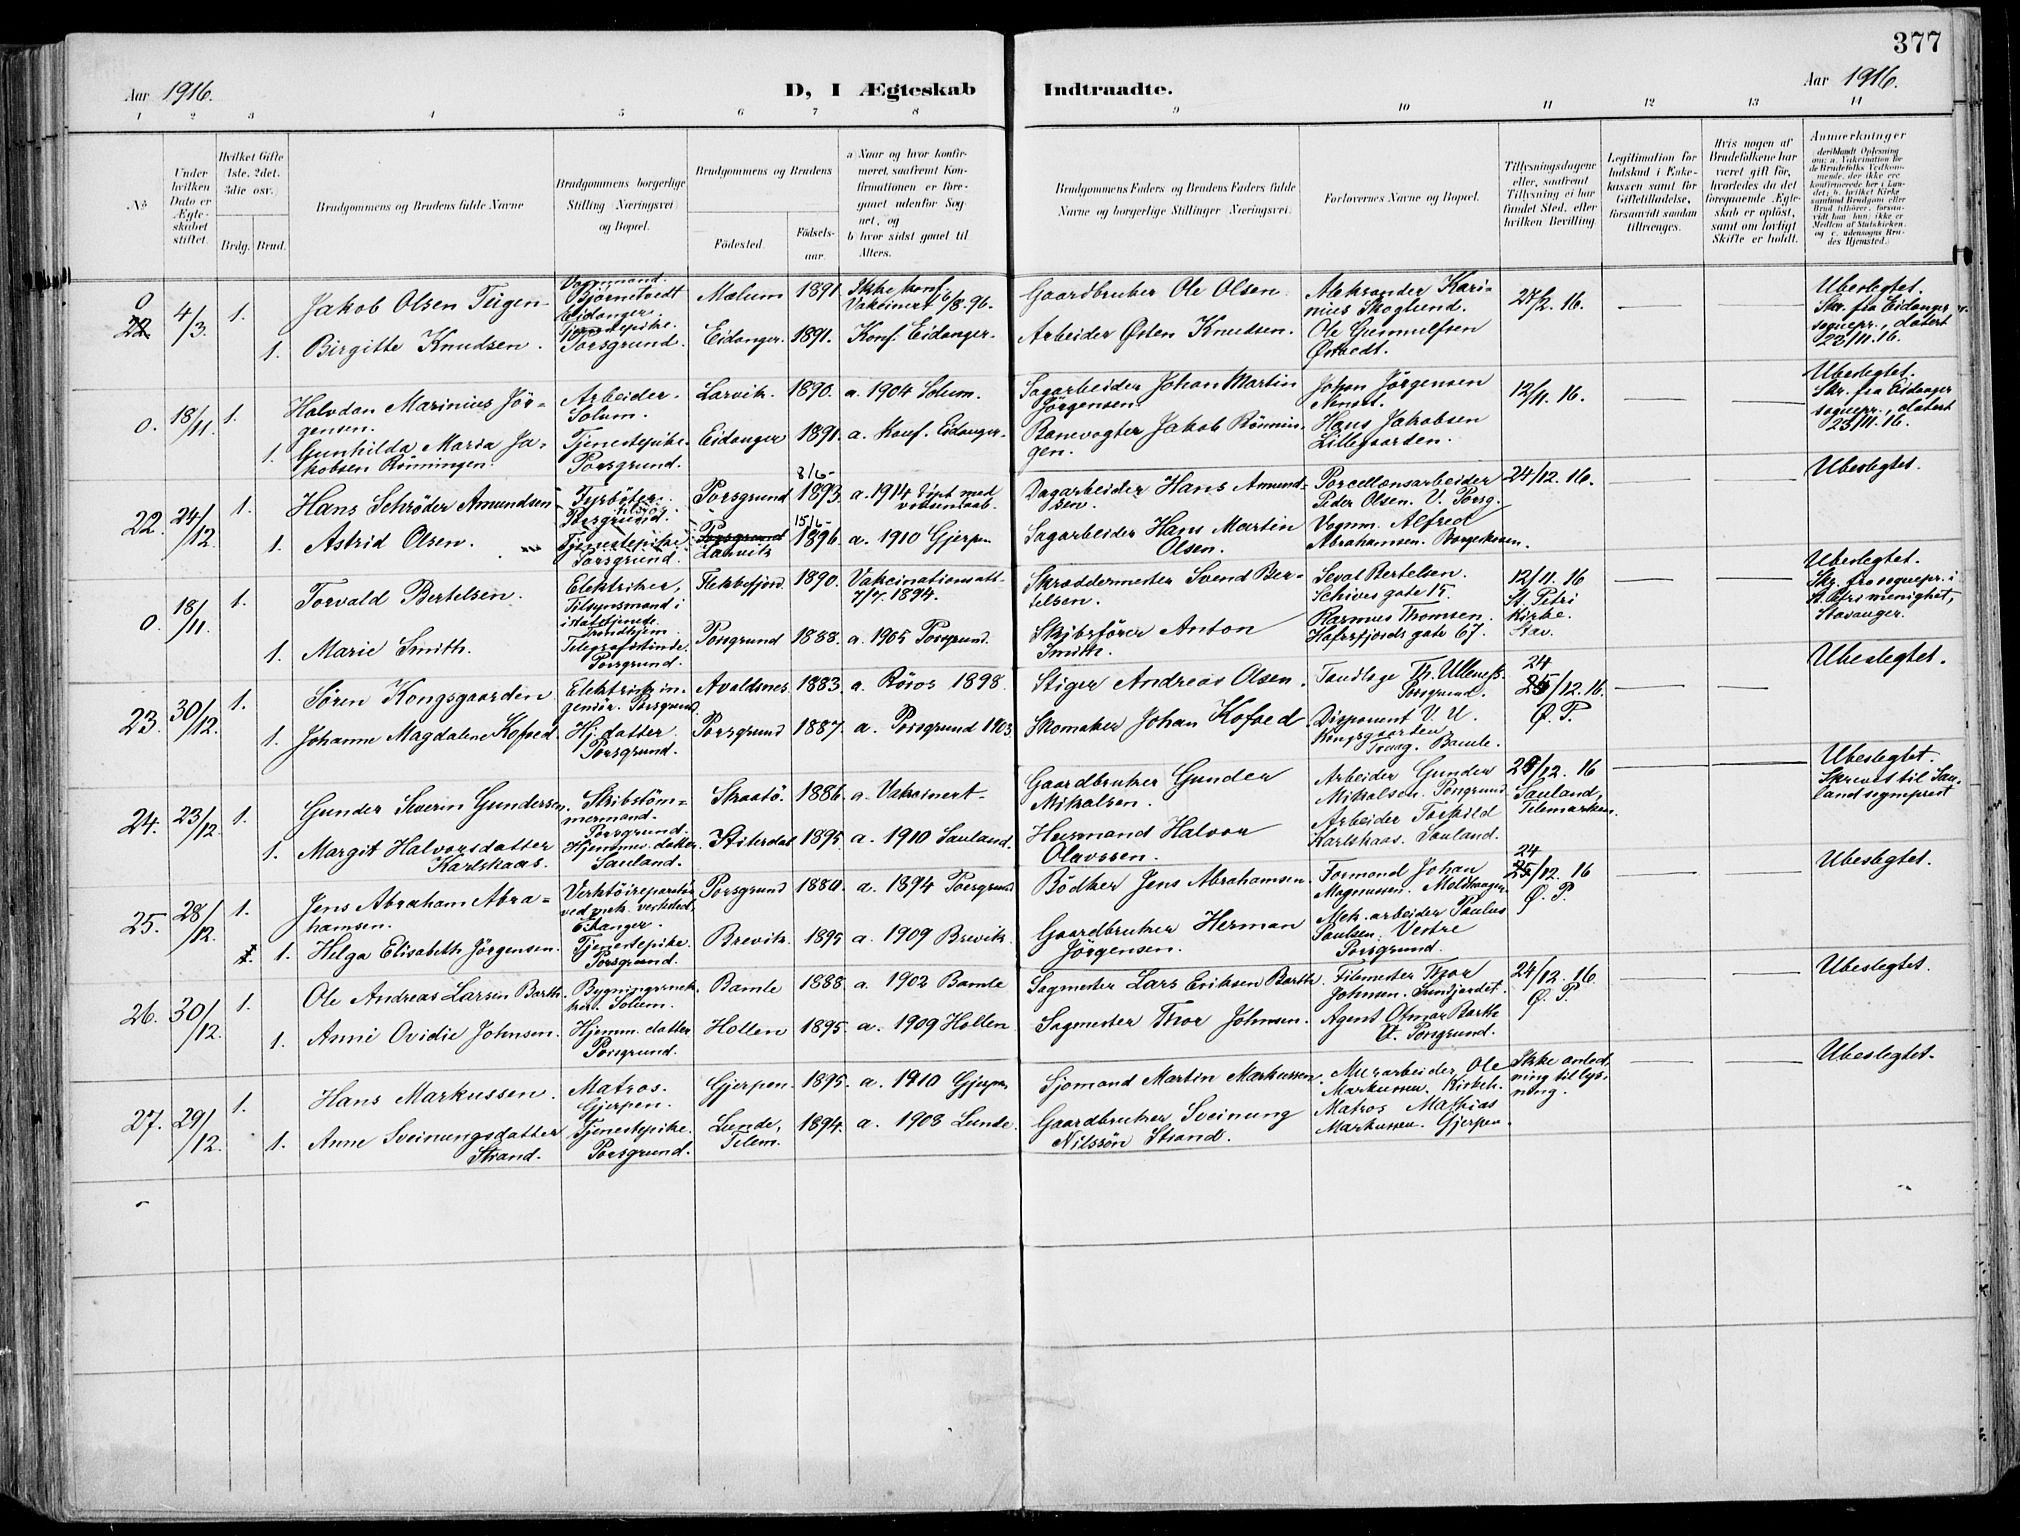 377
Aar 1916.
D, I Ægteskab Indtraadte.
Aar 1916.
1 2 3 4 5 6 7 8 9 10 11 12 13 14
No
Under hvilken Dato er Ægteskabet stiftet.
Hvilket Gifte 1ste, 2det, 3die osv.
Brdg. Brud.
Brudgommens og Brudens fulde Navne
Brudgommens borgerlige Stilling (Næringsvei) og Bopæl.
Brudgommens og Brudens
Fødested. Fødselsaar.
a Naar og hvor konfirmeret, saafremt Konfirmationen er foregaaet udenfor Sognet, og
b hvor sidst gaaet til Alters.
Brudgommens Faders og Brudens Faders fulde Navne og borgerlige Stillinger (Næringsvei).
Forlovernes Navne og Bopæl.
Tillysningsdagene eller, saafremt Tillysning ei har fundet Sted, efter hvilken Bevilling
Legitimation for Indskud i Enkekassen samt for Giftetilladelse, forsaavidt saadan tiltrænges.
Hvis nogen af Brudefolkene har været gift før, hvorledes da det foregaaende Ægteskab er opløst, samt om lovligt Skifte er holdt.
Anmerkninger
(deriblandt Oplysning om: a. Vakcination for de Brudefolks Vedkommende, der ikke ere konfirmerede her i Landet; b. hvilket Kirkesamfund Brudgom eller Brud tilhører, forsaavidt han (hun) ikke er Medlem af Statskirken, og c. udensogns Brudes Hjemsted.)
0
22 4/3 1. Jakob Olsen Teigen Vognmand. Bjørntvedt Eidanger. Mælum 1891 Ikke konf. Vakcinert 6/8.96. Gaardbruker Ole Olsen. Aleksander Karinius Skoglund. 27/2. 16. Ubeslegtet. Skr. fra Eidanger sognepr., datert 23/11.16.
1. Birgitte Knudsen. Tjenestepike. Porsgrund. Eidanger. 1891. Konf. Eidanger. Arbeider Østen Knudsen. Ole Gunnulfsen
0. 18/11. 1. Halvdan Marinius Jörgensen. Arbeider. Solum. Larvik. 1890. a. 1904 Solum. Sagarbeider Johan Martin Jörgensen. Johan Jörgensen Nenset. 12/11. 16. Ubeslegtet. Skr. fra Eidanger sognepr., datert 23/11.16.
1. Gunhilda Maria Jakobsen Rönningen. Tjenestepike. Porsgrund. Eidanger 1891. a. Konf. Eidanger. Banevogter Jakob Rönningen. Hans Jakobsen Lillegaarden.
22. 24/12. 1. Hans Schröder Amundsen Fyrböter. Porsgrund. Porsgrund 8/6- 1893. a. 1914 Döpt med voksendaab. Dagarbeider Hans Amundsen. Porcellænsarbeider Peder Olsen. V. Porsg. 24/12. 16. Ubeslegtet.
1. Astrid Olsen. Tjenestepike. Porsgrund. Porsgrund Larvik 15/6- 1896. a. 1910 Gjerpen Sagarbeider Hans Martin Olsen. Vognm. Alfred Abrahamsen. Borgeskogen.
0. 18/11. 1. Torvald Bertelsen. Elektriker, Tilsynsmand i statstjeneste. Trondhjem. Flekkefjord. 1890. Vakcinationsatt. 7/7 1894. Skræddermester Svend Bertelsen. Seval Bertelsen. Schives gate 15. 12/11. 16 St. Petri Kirke. Stav. Ubeslegtet. Skr. fra sognepr. i St. Petri menighet, Stavanger.
1. Marie Smith. Telegrafistinde. Porsgrund. Porsgrund 1888. a. 1905 Porsgrund. Skibsförer Anton Smith. Rasmus Thomsen. Hafrsfjords gate 67.
23. 30/12. 1. Sören Kongsgaarden Elektrisk ingeniör. Porsgrund. Avaldsnes 1883. a. Röros 1898. Stiger Andreas Olsen. Tandlæge Th. Porsgrund. 24 25/12. 16. Ø. P. Ubeslegtet.
1. Johanne Magdalene Kofoed. Hj. datter. Porsgrund. Porsgrund 1887. a. Porsgrund 1903. Skomaker Johan Kofoed Disponent V. U. Kongsgaarden, Traag. Bamle.
24. 23/12. 1. Gunder Severin Gundersen. Skibstömmermand. Porsgrund. Straatö. 1886. a. Vakcinert. Gaardbruker Gunder Mikalsen. Arbeider Gunder Mikalsen. Porsgrund. 12. 16 Sauland, Telemarken. Ubeslegtet. Skrevet til Sauland sogneprest
1. Margit Halvorsdatter Karlskaas. Hjemmev. datter. Sauland. Hiterdal 1895 a. 1910 Sauland. Husmand Halvor Olavssen. Arbeider Torkild Karlskaas. Sauland.
25. 28/12. 1. Jens Abraham Abrahamsen. Verktöireparatör ved mek. verksted, Eidanger. Porsgrund 1880. a. 1894 Porsgrund Bödker Jens Abrahamsen. Formand Johan Magnussen. 24 25/12. 16 Ø. P. Ubeslegtet.
1. 1. Helga Elisabeth Jörgensen. Tjenestepike. Porsgrund. Brevik. 1895 a. 1909 Brevik. Gaardbruker Herman Jörgensen. Mek. arbeider Paulus Paulsen. Vestre Porsgrund.
26. 30/12. 1. Ole Andreas Larsen Barth. Solum. Bamle 1888. a. 1902 Bamle Sagmester Lars Eriksen Barth. Filemester Thor Johnsen. Sundjordet. 24/12. 16. Ø. P. Ubeslegtet.
1. Anne Ovidie Johnsen. Hjemm. datter. Porsgrund. Hollen 1895. a. 1909 Hollen Sagmester Thor Johnsen. Agent Otmar Barth V. Porsgrund.
27. 29/12. 1. Hans Markussen. Matros. Gjerpen. Gjerpen. 1895. a. 1910 Gjerpen Sjömand Martin Markussen. Murarbeider Ole Markussen. Ikke anledning til lysning. Ubeslegtet.
1. Anne Sveinungsdatter Strand. Tjenestepike. Porsgrund. Lunde, Telem. 1894. a. 1908 Lunde. Gaardbruker Sveinung Nilssön Strand. Matros Mathias Markussen. Gjerpen.